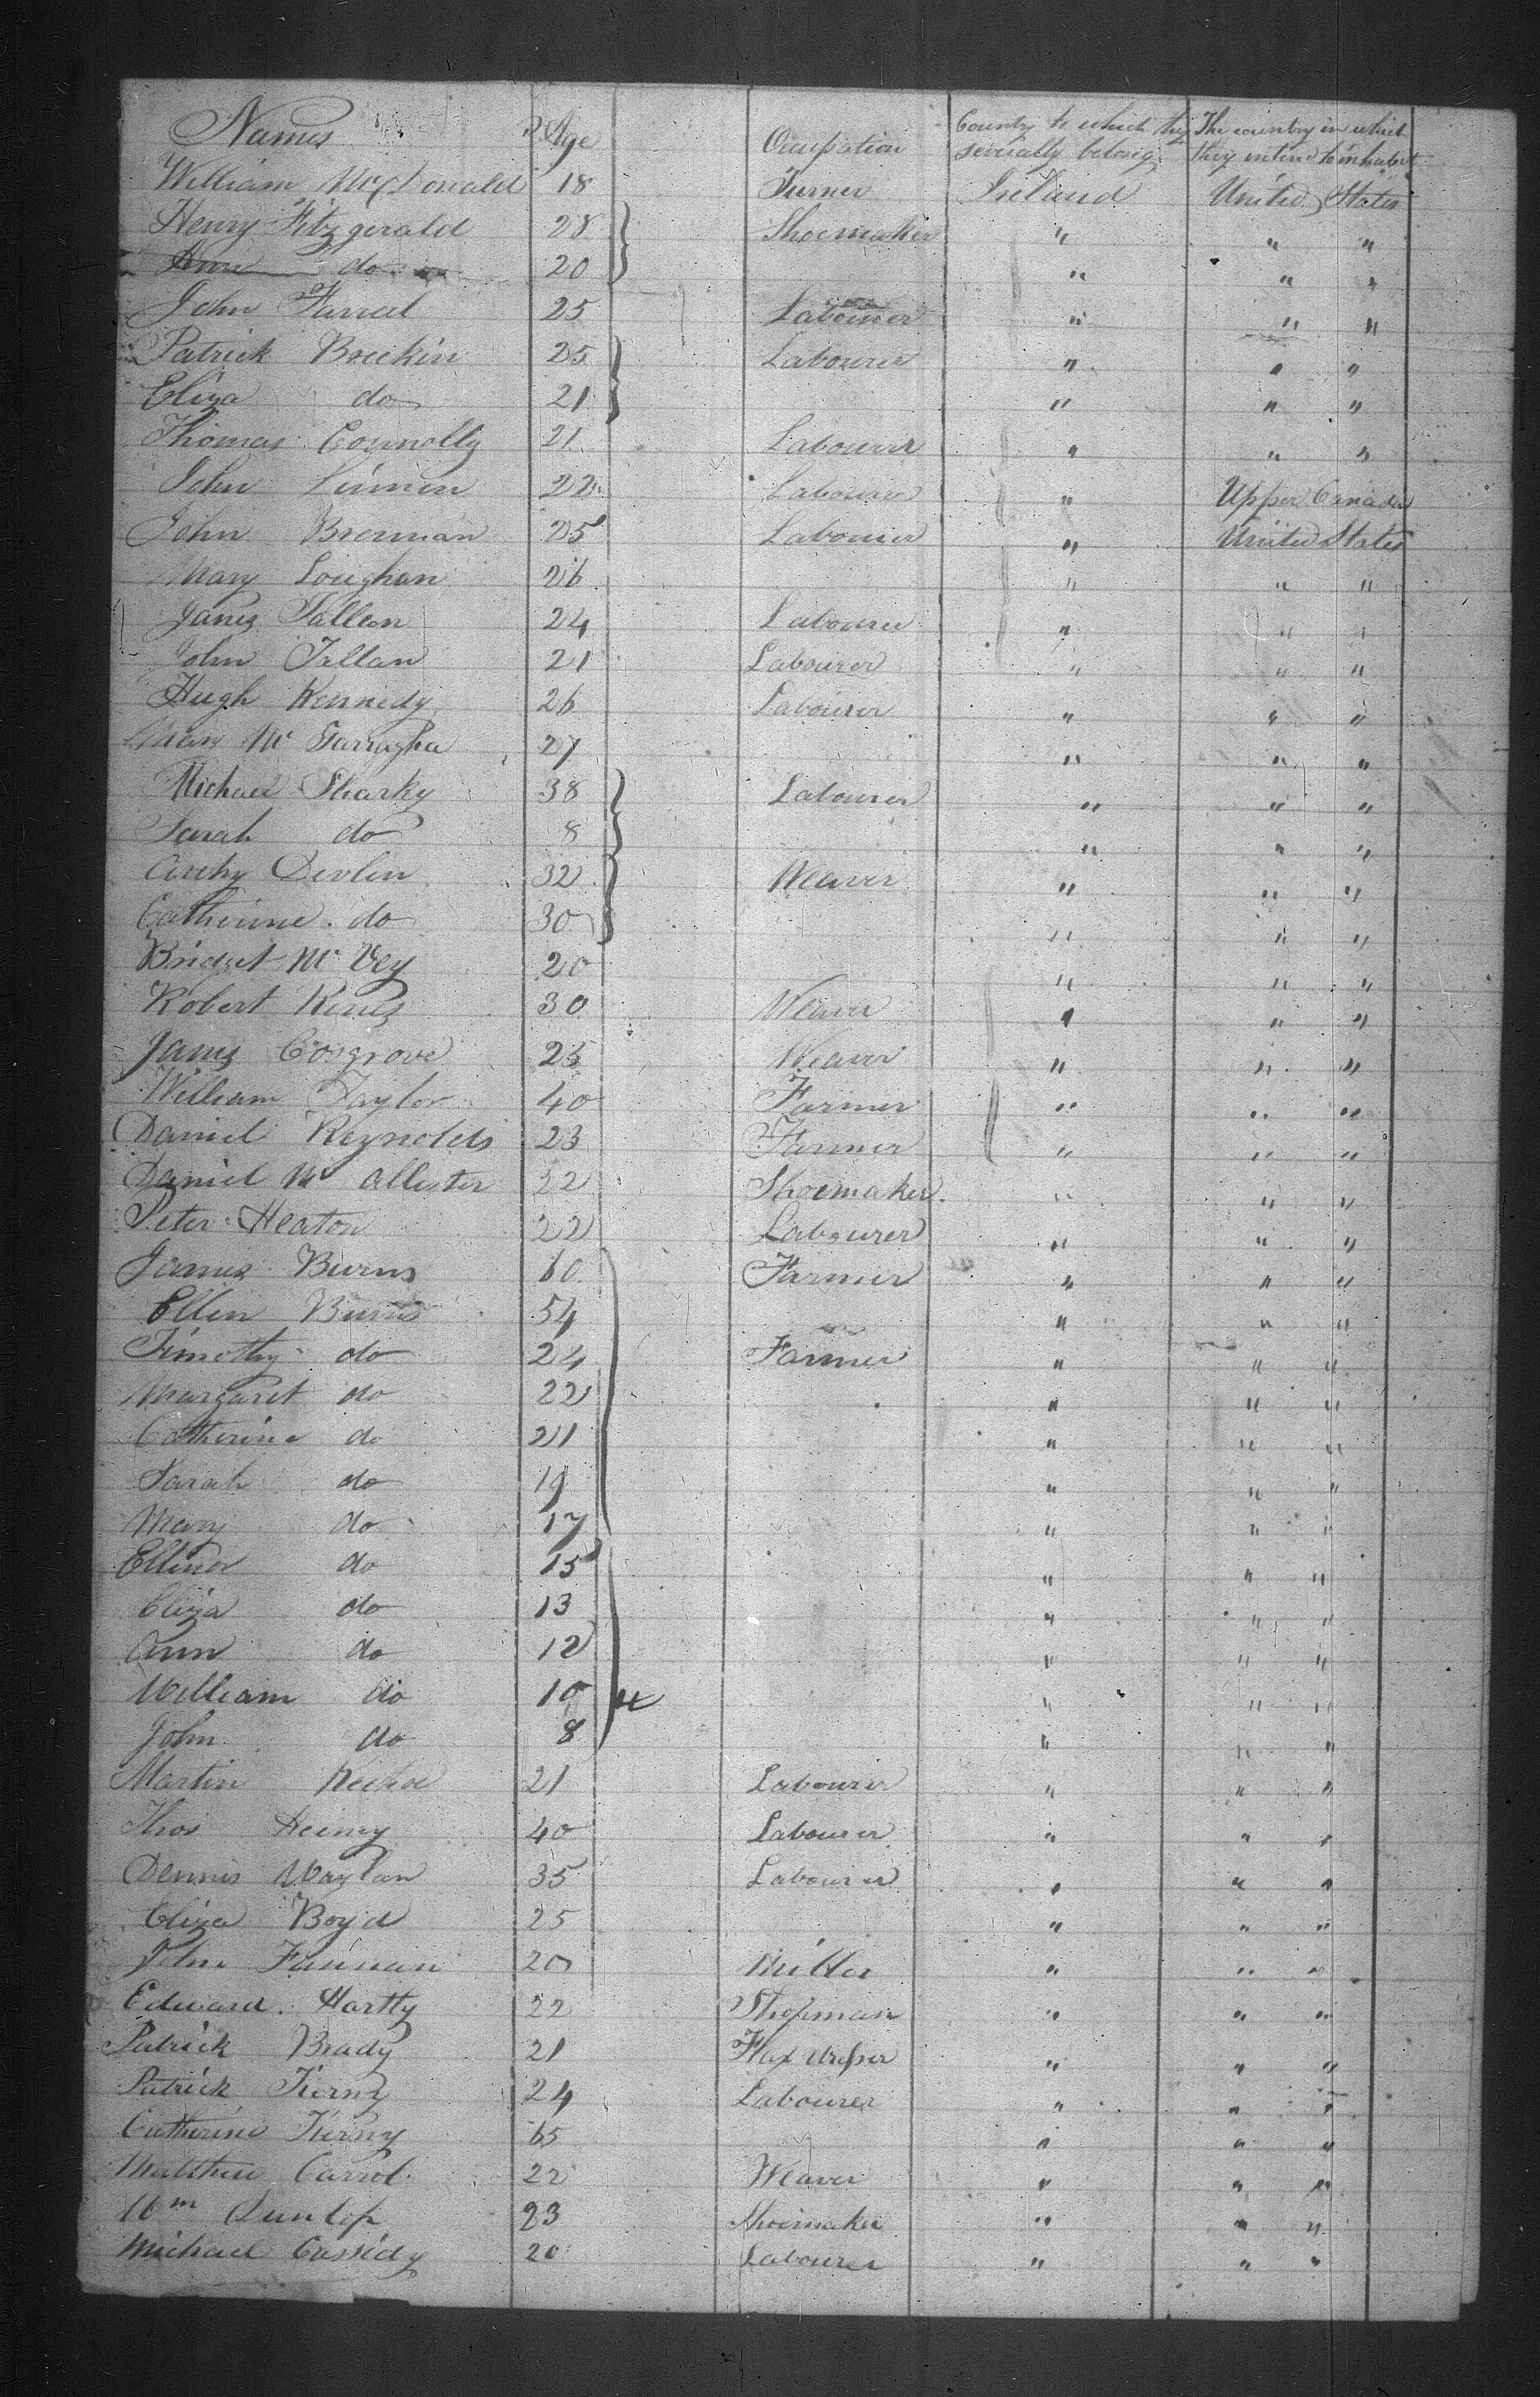 Names Age Occupation Country to which they severally belong The country in which they intend to inhabit
William McDonald 18 Turner Ireland United States
Henry Fitzgerald 28 Shoemaker " " "
Ann do 20 " " "
John Farrel 25 Labourer " " "
Patrick 25 Labourer " " "
Eliza do 21 " " "
Thomas Connolly 21 Labourer " " "
John 22 Labourer " Upper Canada
John Brennan 25 Labourer " United States
Mary Loughan 26 " " "
James Fallan 24 Labourer " " "
John Fallan 21 Labourer " " "
Hugh Kennedy 26 Labourer " " "
Mc Garragha 27 " " "
Michael Sharky 38 Labourer " " "
Sarah do 8 " " "
Archy Devlin 32 Weaver " " "
Catherine do 30 " " "
Bridget Mc Vey 20 " " "
Robert 30 Weaver " " "
James Cosgrove 25 Weaver " " "
William Taylor 40 Farmer " " "
Daniel Reynolds 23 Farmer " " "
Daniel Mc Allester 22 Shoemaker " " "
Peter Heaton 22 Labourer " " "
James Burns 60 Farmer " " "
Ellen Burns 54 " " "
Timothy do 24 Farmer " " "
Margaret do 22 " " "
Catherine do 21 " " "
Sarah do 19 " " "
Mary do 17 " " "
Ellinor do 15 " " "
Eliza do 13 " " "
Ann do 12 " " "
William do 10 " " "
John do 8 " " "
Martin Keehoe 21 Labourer " " "
Thos Heiny 40 Labourer " " "
Dennis 35 Labourer " " "
Eliza Boyd 25 " " "
John Fannan 20 Miller " " "
Edward Hartty 22 Shopman " " "
Patrick Brady 21 Flax dresser " " "
Patrick Tierny 24 Labourer " " "
Catherine Tierny 65 " " "
Matthew Carrol 22 Weaver " " "
Wm Dunlop 23 Shoemaker " " "
Michael Cassidy 20 Labourer " " "